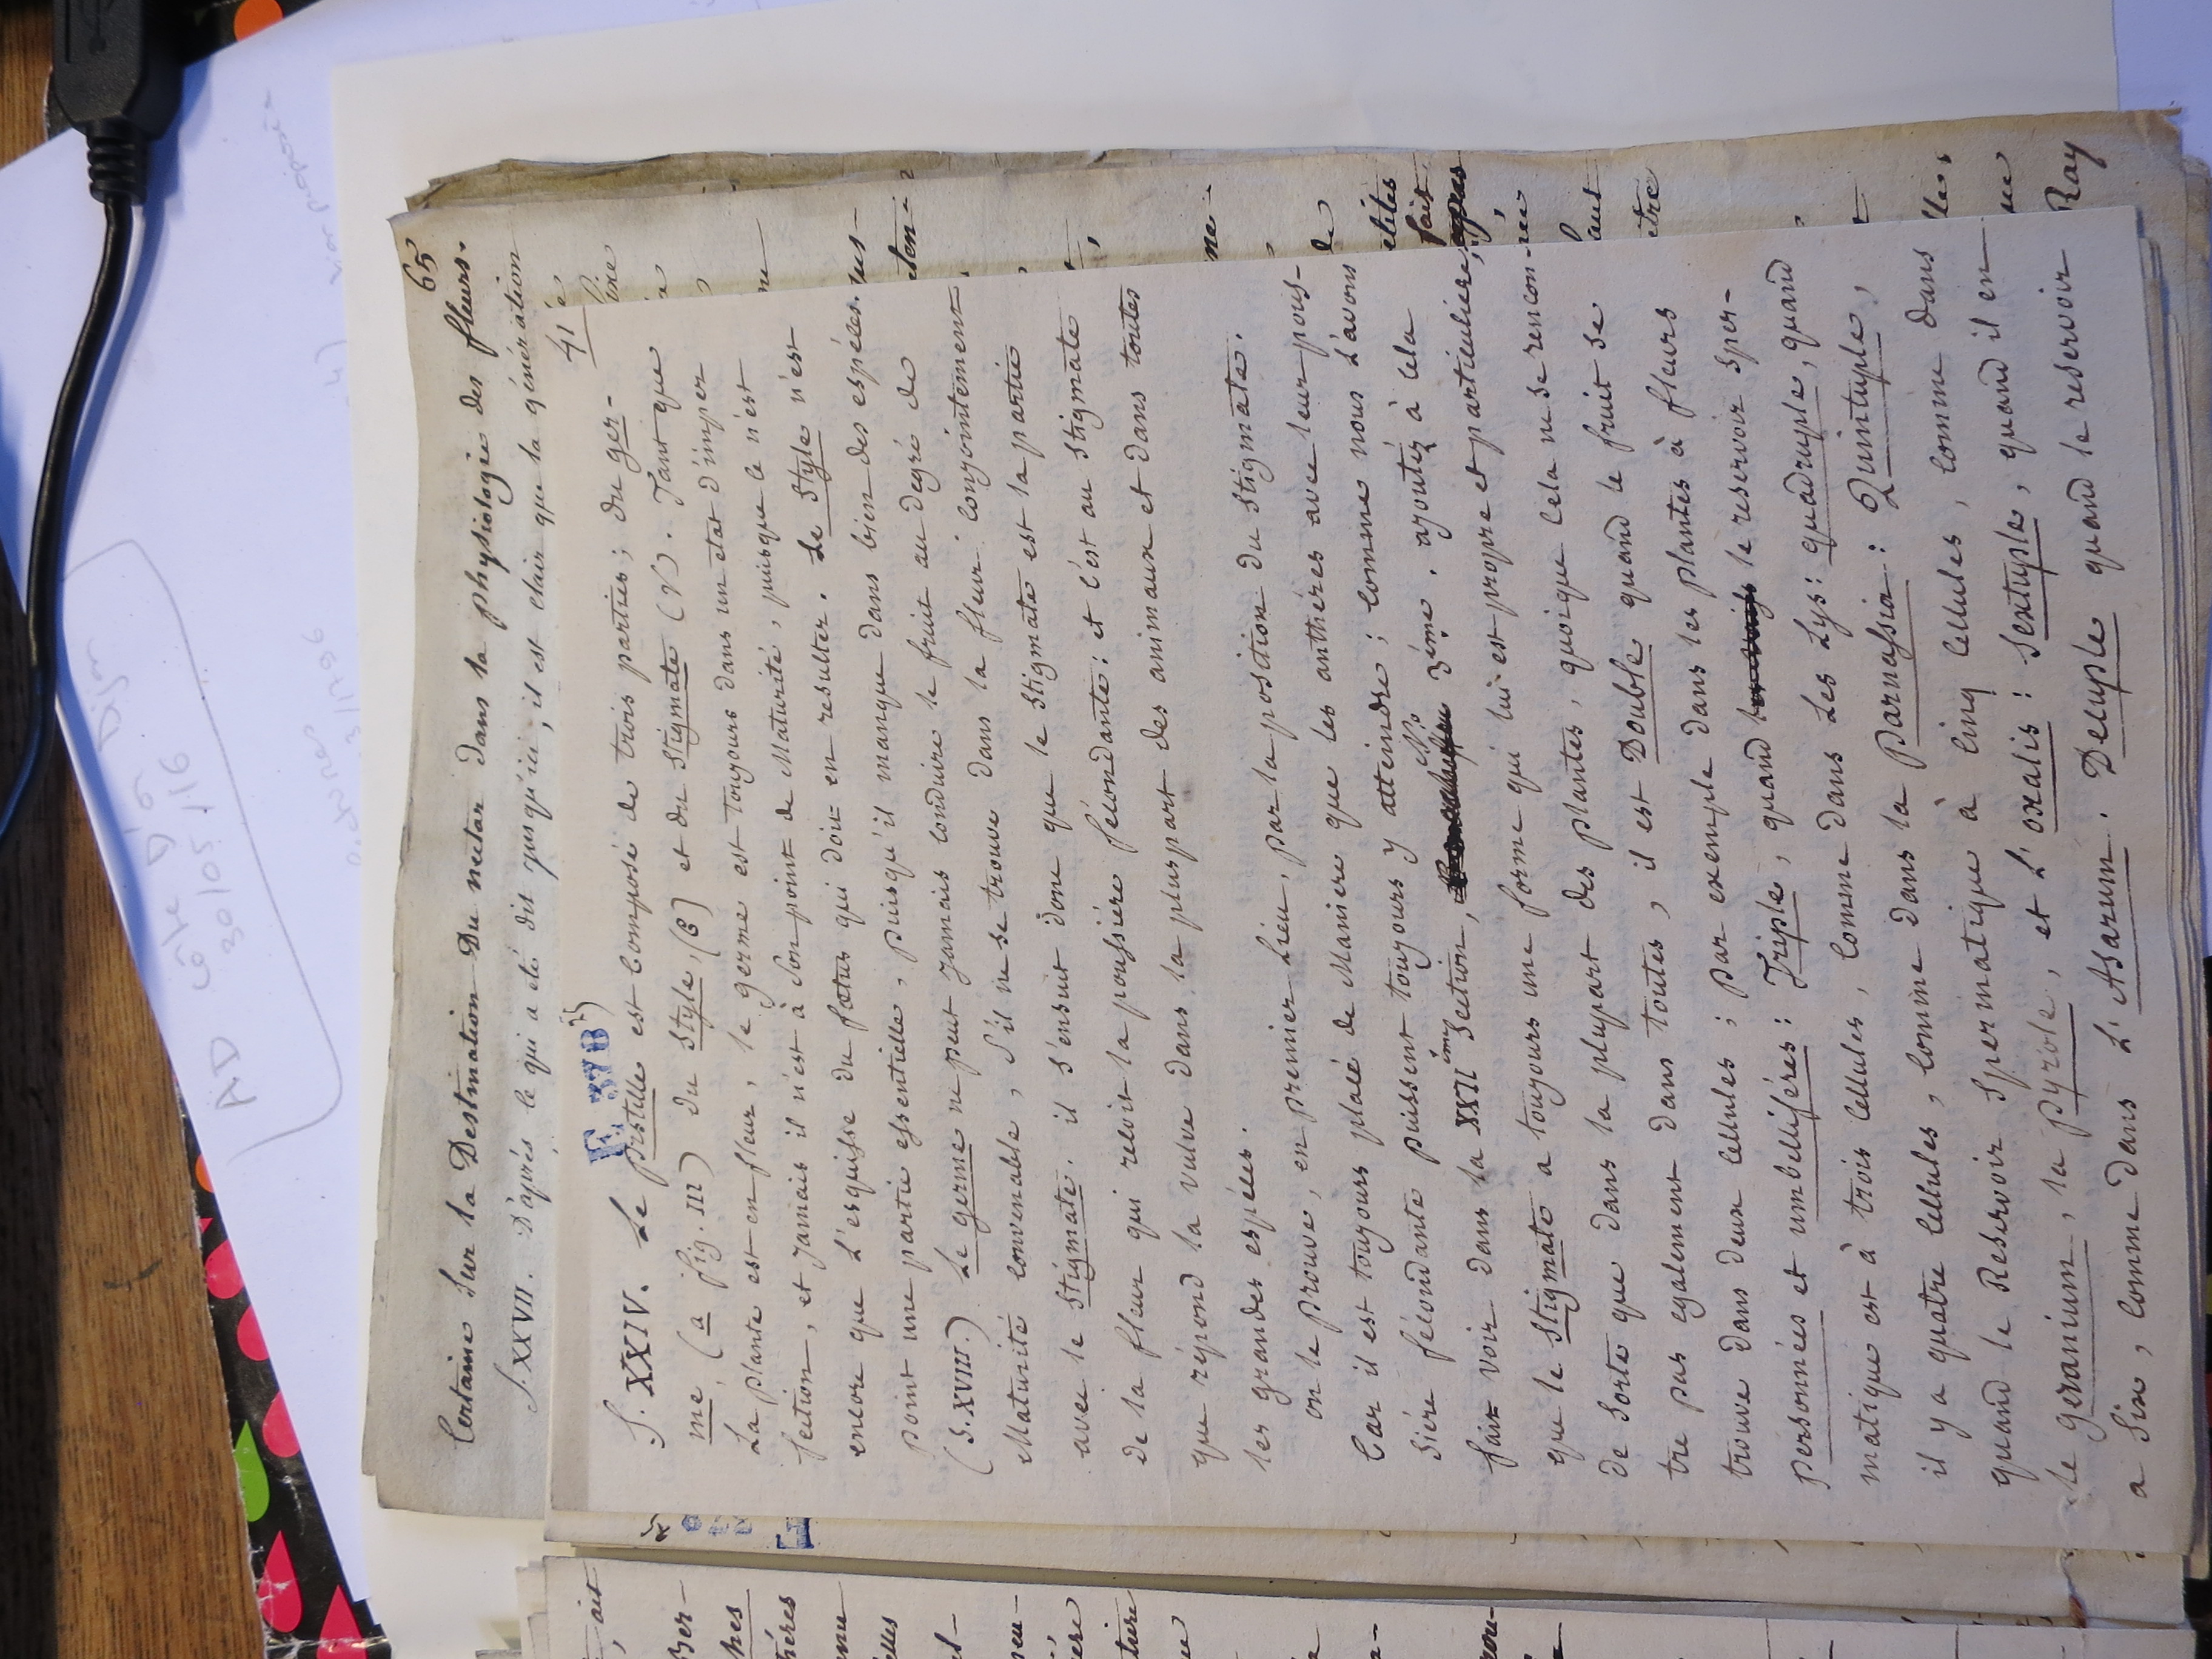 65
Certaine sur la Destination Du nectar dans la physiologie des fleurs.
S. XXVII. D'après ce qui a eté dit jusqu'ici, il est clair que la génération
41
E 378
S. XXIV. Le pistille est composé de trois parties; du ger-
me, (a fig. III) du style, (6) et du stigmate (V). Tant que
La plante est en fleur, le germe est toujours dans un etat d'imper
fection, et jamais il n'est à son point de Maturité, puisque ce n'est
encore que L'esquisse du fœtus qui doit en resulter. Le style n'est
point une partie essentielle, puisqu'il manque dans bien des espéces.
(S. XVIII.) Le germe ne peut jamais conduire le fruit au degré de
Maturité convenable, s'il ne se trouve dans la fleur conjointement
avec le stigmate. il s'ensuit donc que le stigmate est la partie
de la fleur qui reçoit la poussiére fécondante: et c'est au stigmate
que répond la vulve dans la pluspart des animaux et dans toutes
les grandes espéces.
on le prouve, en premier Lieu, par la position du stigmate.
Car il est toujours placé de Maniere que les anthéres avec leur pous-
siére fécondante puissent toujours y atteindre; comme nous L'avons
fait voir dans la XXII eme Section, 3éme. ajoutéz à cela
que le stigmate a toujours une forme qui lui est propre et particuliere,
de sorte que dans la plupart des plantes, quoique cela ne se rencon-
tre pas egalement dans toutes, il est Double quand le fruit se
trouve dans deux cellules; par exemple dans les plantes à fleurs
personnées et umbelliféres: Triple, quand le reservoir sper-
matique est à trois cellules, comme dans Les Lys: quadruple, quand
il y a quatre cellules, comme dans la Parnassia: Quintuple,
quand le Reservoir spermatique à cinq cellules, comme dans
le geranium, la pyrole, et L'oxalis: sextuple, quand il en
a six, comme dans L'Asarum. Decuple quand le reservoir
Ray